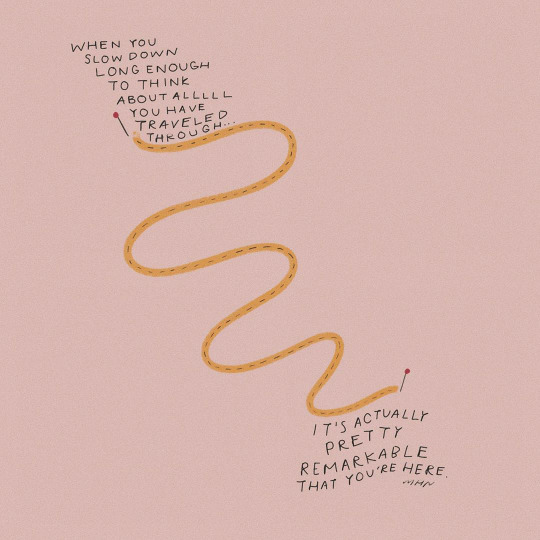 WHEN YOU
SLOW DOWN
LONG ENOUGH
TO THINK
ABOUT ALLLLL
YOU HAVE
TRAVELED
THROUGH...
IT'S ACTUALLY
PRETTY
REMARKABLE
THAT YOU'RE HERE.
MHN